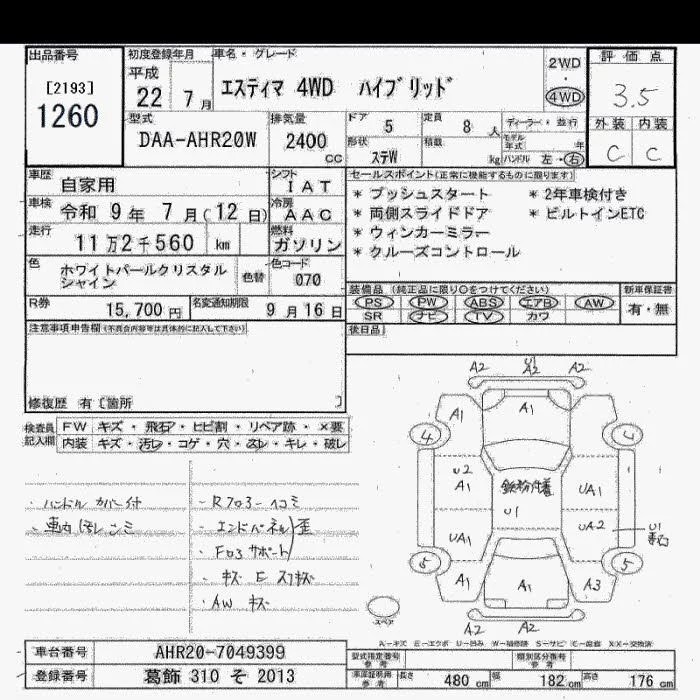 出品番号
[2193]
1260
初度登録年月
平成
22 7月
車名・グレード
エスティマ 4WD ハイブリッド
2WD
・
4WD
評価点
3.5
外装 内装
C C
型式
DAA-AHR20W
排気量
2400
cc
ドア 5
定員 8 人
形状 ステW
積載 kg
ディーラー・並行
モデル年式 年
ハンドル 左・右
車歴
自家用
シフト
IAT
車検
令和 9年 7月(12日)
冷房
AAC
走行
11万2千560 km
燃料
ガソリン
色
ホワイトパールクリスタル
シャイン
色替
色コード
070
R券
15,700円
名変通知期限
9月16日
セールスポイント(正常に機能するものに限ります)
* プッシュスタート * 2年車検付き
* 両側スライドドア * ビルトインETC
* ウィンカーミラー
* クルーズコントロール
装備品 (純正品に限り○をつけてください)
PS PW ABS エアB AW
SR ナビ TV カワ
新車保証書
有・無
後日品
注意事項申告欄(不具合内容等は具体的に記入して下さい)
修復歴 有 [箇所 ]
検査員
記入欄
FW キズ・飛石・ヒビ割・リペア跡・×要
内装 キズ・汚レ・コゲ・穴・ネジ・キレ・破レ
・ハンドル カバー付
・車内 汚レ シミ
・Rフロアーヘコミ
・エンドパネル 歪
・Fコアサポート
・キズ E スリキズ
・AW キズ
A2 U1 A2 A2
A1 A1
4 4
U2
A1 鉄粉付着 UA1
U1
UA1 UA2 U1
5 5
A1 A1 A3
A2 A2
スペア
A-キズ E-エクボ U-凹み W-補修跡 S-サビ C-腐食 XX-交換済
車台番号 AHR20-7049399
登録番号 葛飾 310 そ 2013
型式指定番号
参考
類別区分番号
参考
車庫証明用
参考
長さ 480 cm 幅 182 cm 高さ 176 cm